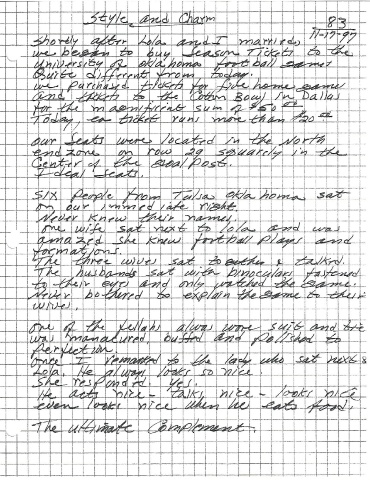 Style and Charm
83
11-17-97
Shortly after Lola and I married,
we began to buy Season Tickets to the
University of Oklahoma football games
Quite different from today.
we purchased tickets for five home games
and tickets to the Cotton Bowl in Dallas
for the magnificent sum of $50
Today, ea ticket runs more than
our Seats were located in the North
end zone on row 29 squarely in the
Center of the Goal Post.
Ideal Seats.
Six People from Tulsa Oklahoma sat
on our immediate right.
Never knew their names.
one wife sat next to Lola and was
amazed she knew football plays and
formations.
The three wives sat together & talked.
The husbands sat with binoculars fastened
to their eyes and only watched the game.
Never bothered to explain the game to their
wives.
one of the fellahs always wore suit and tie
was manacured, buffed and polished to
perfection.
once I remarked to the lady who sat next to
Lola. He always looks so nice.
She respondrd. Yes.
He acts nice - talks nice - looks nice
even looks nice when he eats food.
The ultimate Complement.